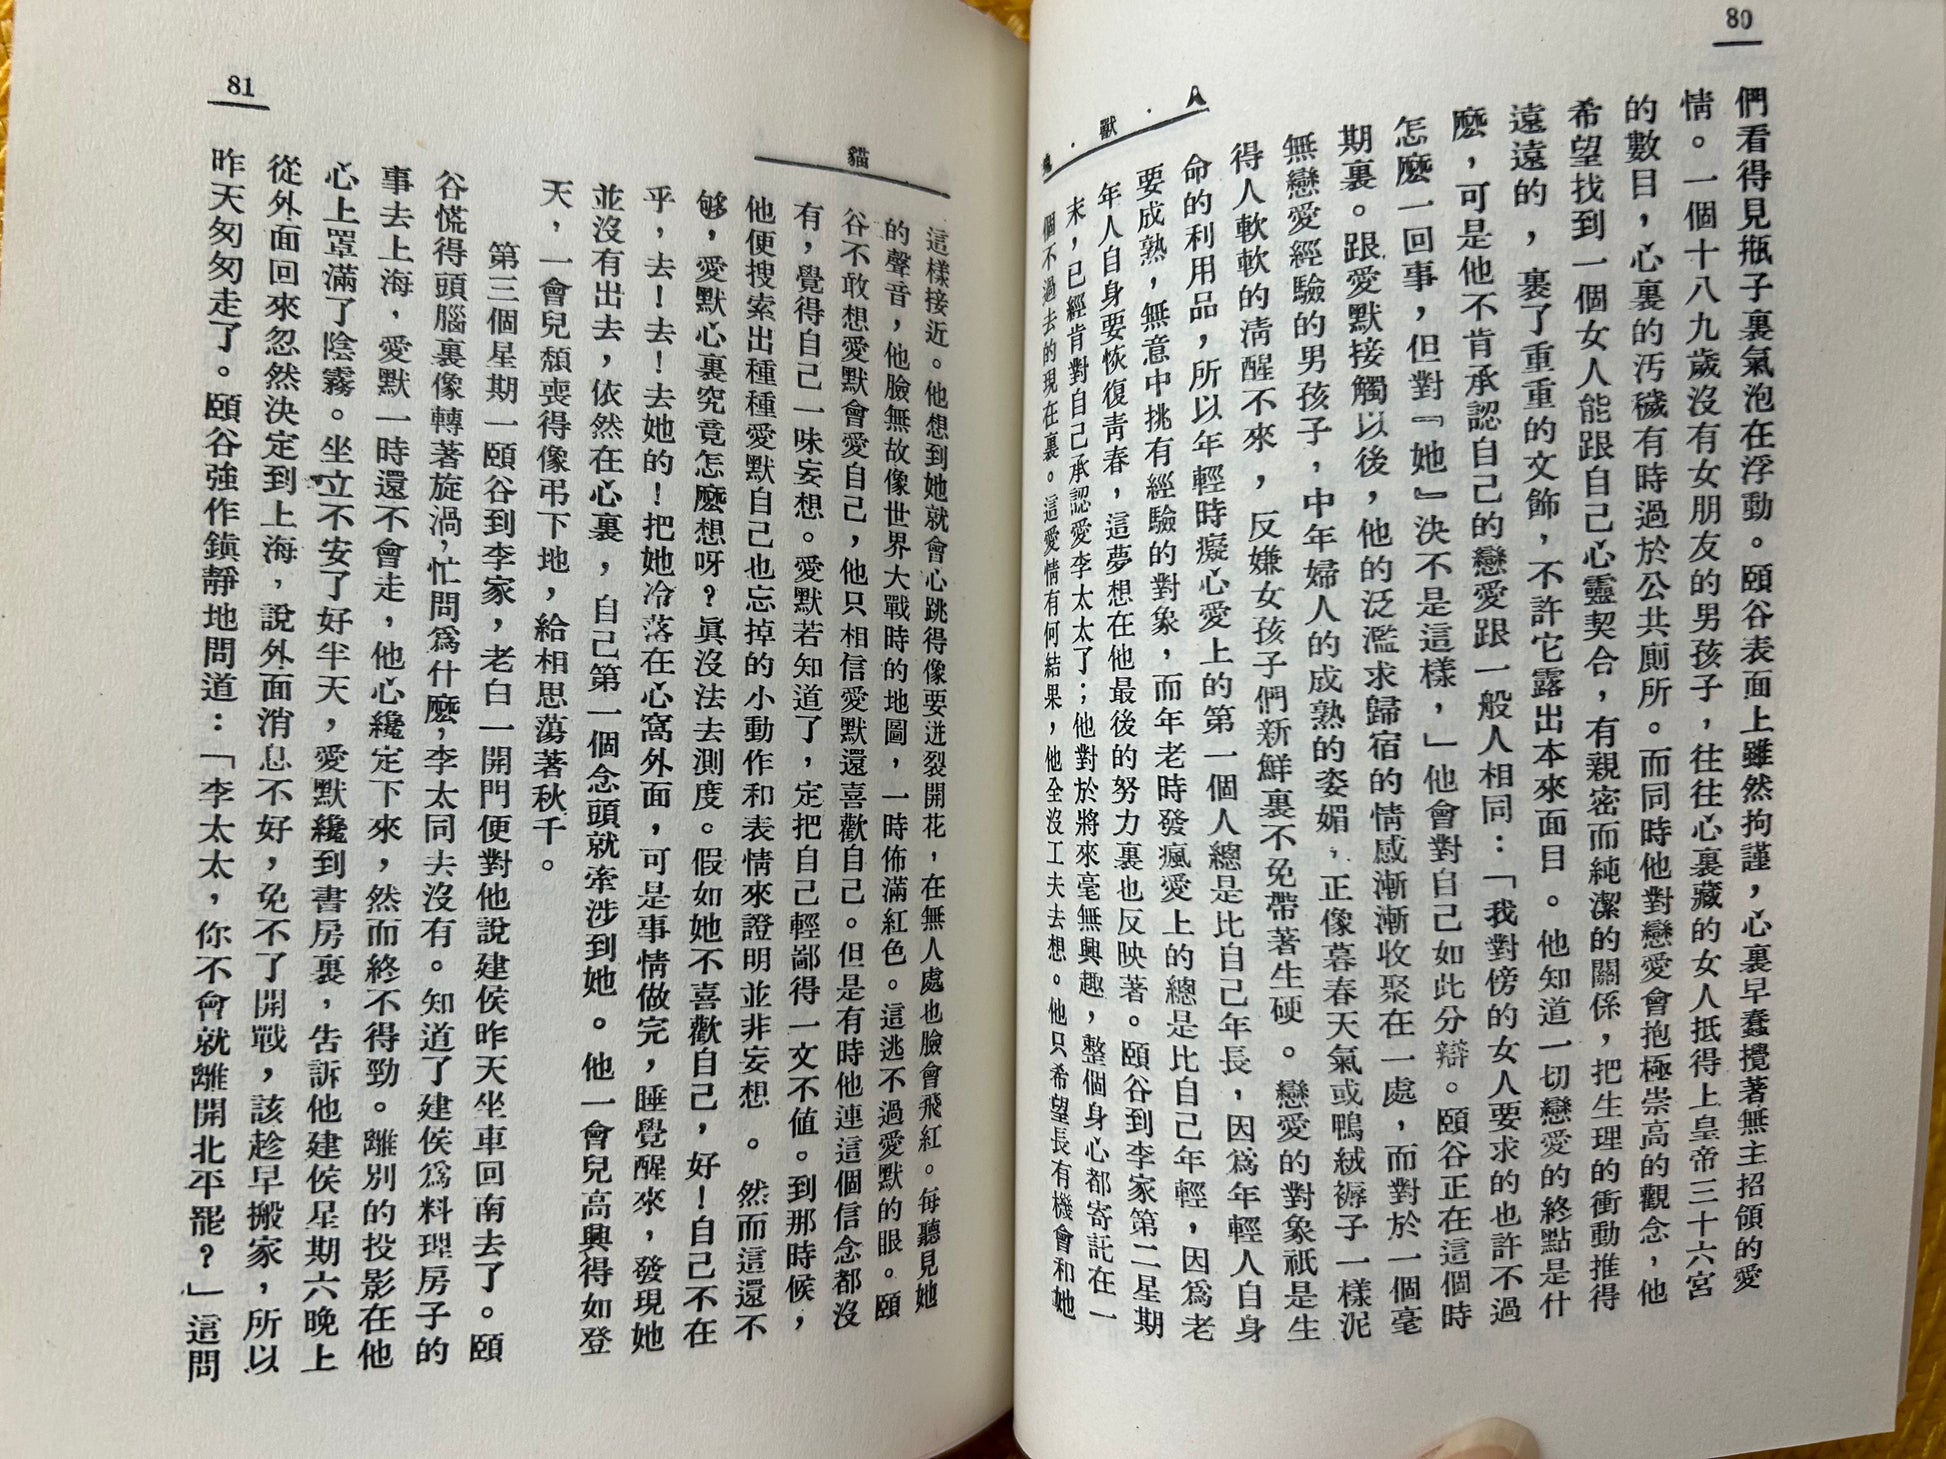 80
人．獸．鬼
們看得見瓶子裏氣泡在浮動。頤谷表面上雖然拘謹，心裏早蠢攪著無主招領的愛
情。一個十八九歲沒有女朋友的男孩子，往往心裏藏的女人抵得上皇帝三十六宮
的數目，心裏的汚穢有時過於公共廁所。而同時他對戀愛會抱極崇高的觀念，他
希望找到一個女人能跟自己心靈契合，有親密而純潔的關係，把生理的衝動推得
遠遠的，裏了重重的文飾，不許它露出本來面目。他知道一切戀愛的終點是什
麼，可是他不肯承認自己的戀愛跟一般人相同：「我對傍的女人要求的也許不過
怎麼一回事，但對『她』決不是這樣，」他會對自己如此分辯。頤谷正在這個時
期裏。跟愛默接觸以後，他的泛濫求歸宿的情感漸漸收聚在一處，而對於一個毫
無戀愛經驗的男孩子，中年婦人的成熟的姿媚，正像暮春天氣或鴨絨褥子一樣泥
得人軟軟的淸醒不來，反嫌女孩子們新鮮裏不免帶著生硬。戀愛的對象祇是生
命的利用品，所以年輕時癡心愛上的第一個人總是比自己年長，因爲年輕人自身
要成熟，無意中挑有經驗的對象，而年老時發瘋愛上的總是比自己年輕，因爲老
年人自身要恢復靑春，這夢想在他最後的努力裏也反映著。頤谷到李家第二星期
末，已經肯對自己承認愛李太太了；他對於將來毫無興趣，整個身心都寄託在一
個不過去的現在裏。這愛情有何結果，他全沒工夫去想。他只希望長有機會和她
81
貓
這樣接近。他想到她就會心跳得像要迸裂開花，在無人處也臉會飛紅。每聽見她
的聲音，他臉無故像世界大戰時的地圖，一時佈滿紅色。這逃不過愛默的眼。頤
谷不敢想愛默會愛自己，他只相信愛默還喜歡自己。但是有時他連這個信念都沒
有，覺得自己一味妄想。愛默若知道了，定把自己輕鄙得一文不值。到那時候，
他便搜索出種種愛默自己也忘掉的小動作和表情來證明並非妄想。然而這還不
够，愛默心裏究竟怎麼想呀？眞沒法去測度。假如她不喜歡自己，好！自己不在
乎，去！去！去她的！把她冷落在心窩外面，可是事情做完，睡覺醒來，發現她
並沒有出去，依然在心裏，自己第一個念頭就牽涉到她。他一會兒高興得如登
天，一會兒頹喪得像弔下地，給相思蕩著秋千。
第三個星期一頤谷到李家，老白一開門便對他說建侯昨天坐車回南去了。頤
谷慌得頭腦裏像轉著旋渦，忙問爲什麼，李太同去沒有。知道了建侯爲料理房子的
事去上海，愛默一時還不會走，他心纔定下來，然而終不得勁。離別的投影在他
心上罩滿了陰霧。坐立不安了好半天，愛默纔到書房裏，告訴他建侯星期六晚上
從外面回來忽然決定到上海，說外面消息不好，免不了開戰，該趁早搬家，所以
昨天匆匆走了。頤谷強作鎮靜地問道：「李太太，你不會就離開北平罷？」這問